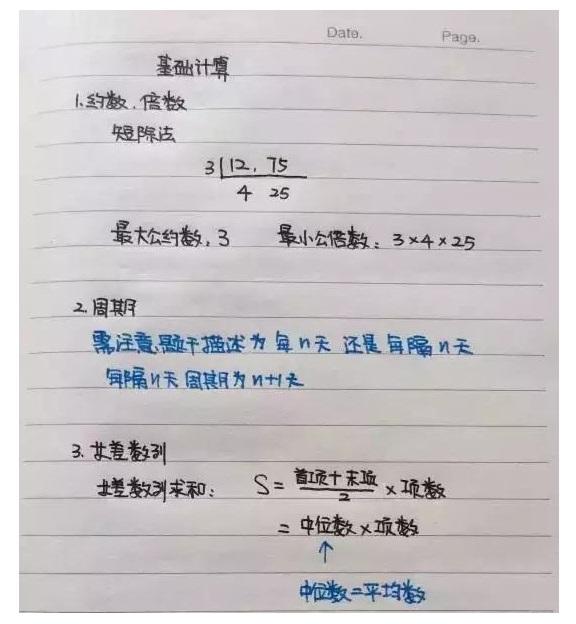 Date. Page.
基础计算
1.约数、倍数
短除法
3|12, 75
4 25
最大公约数: 3 最小公倍数: 3×4×25
2.周期
需注意题干描述为每n天 还是每隔n天
每隔n天 周期为n+1天
3.等差数列
等差数列求和: S= (首项+末项)/2 ×项数
= 中位数×项数
↑
中位数=平均数